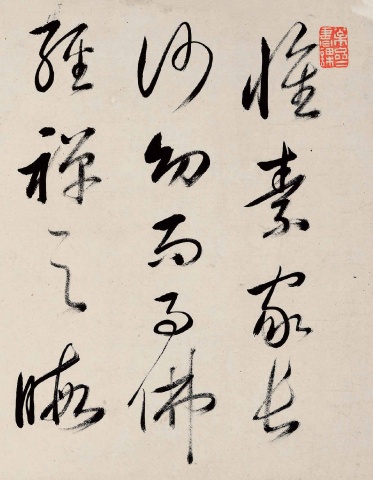 懷素家長
沙幼而事佛
經禪之暇